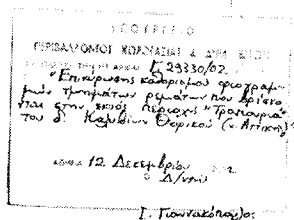 ΥΠΟΥΡΓΕΙΟ
ΠΕΡΙΒΑΛΛΟΝΤΟΣ ΧΩΡΟΤΑΞΙΑΣ & ΔΗΜ. ΕΡΓΩΝ
Γ. 29330/02
"Επικύρωσης καθορισμού οριογραμ-
μών τμημάτων ρεμάτων που βρίσκο
νται στην εκτός περιοχή "Τραπουριά"
του δ. Καλυβίων Θορικού (ν. Αττικής)"
ΑΘΗΝΑ 12 Δεκεμβρίου
Ο Δ/ντής
Γ. Γιαννακόπουλος